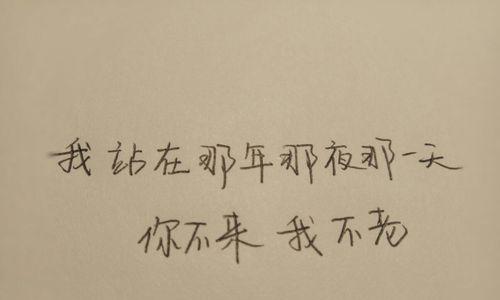 我站在那年那夜那一天
你不来 我不老